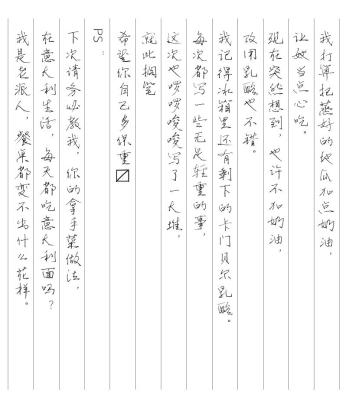 我打算把蒸好的地瓜加点奶油，
让她当点心吃。
现在突然想到，也许不加奶油，
改用乳酪也不错。
我记得冰箱里还有剩下的卡门贝尔乳酪。
每次都写一些无足轻重的事，
这次也啰啰唆唆写了一大堆，
就此搁笔
希望你自己多保重
PS：
下次请务必教我，你的拿手菜做法，
在意大利生活，每天都吃意大利面吗？
我是老派人，餐桌都变不出什么花样。